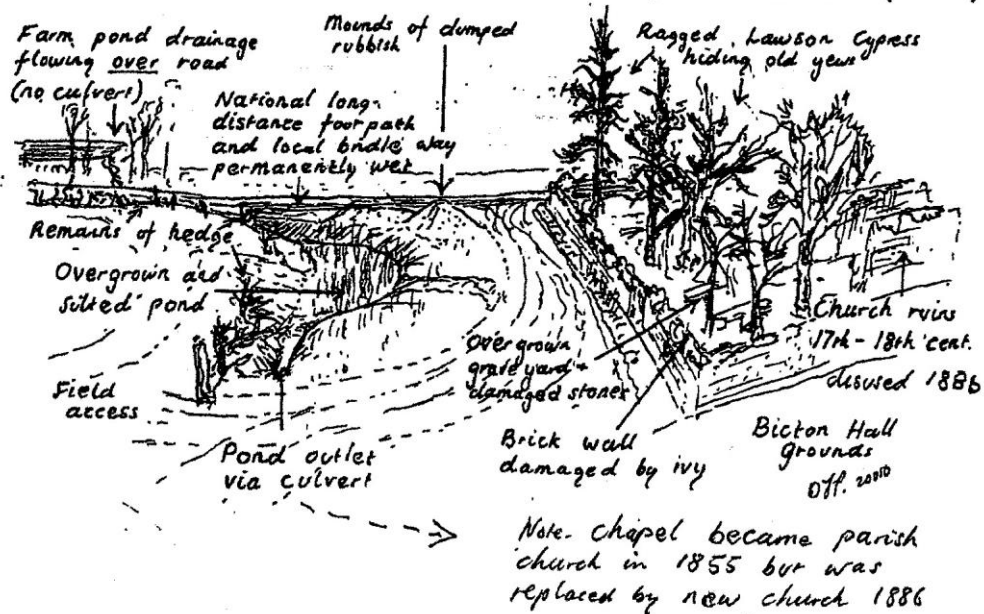 Farm pond drainage
flowing over road
(no culvert)
Mounds of dumped
rubbish
Ragged Lawson Cypress
hiding old yews
National long-
distance footpath
and local bridle way
permanently wet
Remains of hedge
Overgrown and
silted pond
Field
access
Pond outlet
via culvert
Overgrown
graveyard +
damaged stones
Brick wall
damaged by ivy
Church ruins
17th - 18th cent.
disused 1886
Bicton Hall
grounds
Note. Chapel became parish
church in 1855 but was
replaced by new church 1886